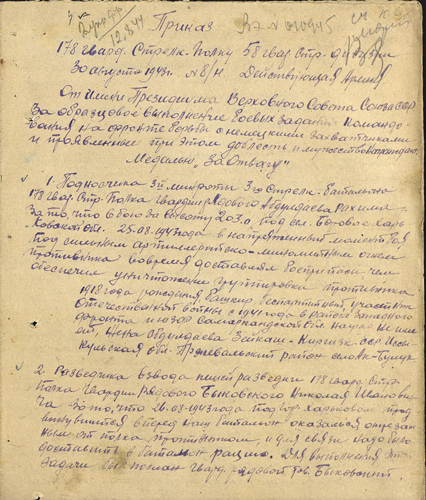 Приказ
178 гвард. Стрелк. Полку 58 гвар. Стр. Дивизии
30 августа 1943 г. N 8/н. Действующая Армия
От имени Президиума Верховного Совета Союза ССР
За образцовое выполнение боевых заданий Командо-
вания на фронте борьбы с немецкими захватчиками
и проявленные при этом доблесть и мужество награждаю:
Медалью "За Отвагу"
1. Подносчика 3й минроты 3го Стрелк. Батальона
178 гв. Стр. Полка Гвардии рядового Абдулдаева Рахима
За то, что в бою за высоту 203.0, под сел.
25.08.1943 года в напряженный момент боя
под сильным артиллерийско-минометным огнем
противника вовремя доставлял боеприпасы чем
обеспечил уничтожение группировки противника
1918 года рождения беспартийный, участник
Отечественной войны с 1941 года в районе Западного
фронта
Жена Абдулдаева Киргизк. ССР Иссы-
Кульская обл. район село Ак-Булук
2. Разведчика взвода пешей разведки 178 гвард. Стр.
Полка Гвардии рядового Быковского Николая Ивановича
За то, что 26.08.1943 года под гор. Харьковом
выдвинутся вперед наш батальон оказался отрезан-
ным от полка противником, и для связи надо было
доставить в батальон рацию. Для выполнения этой
задачи был послан гвард. рядовой тов. Быковский